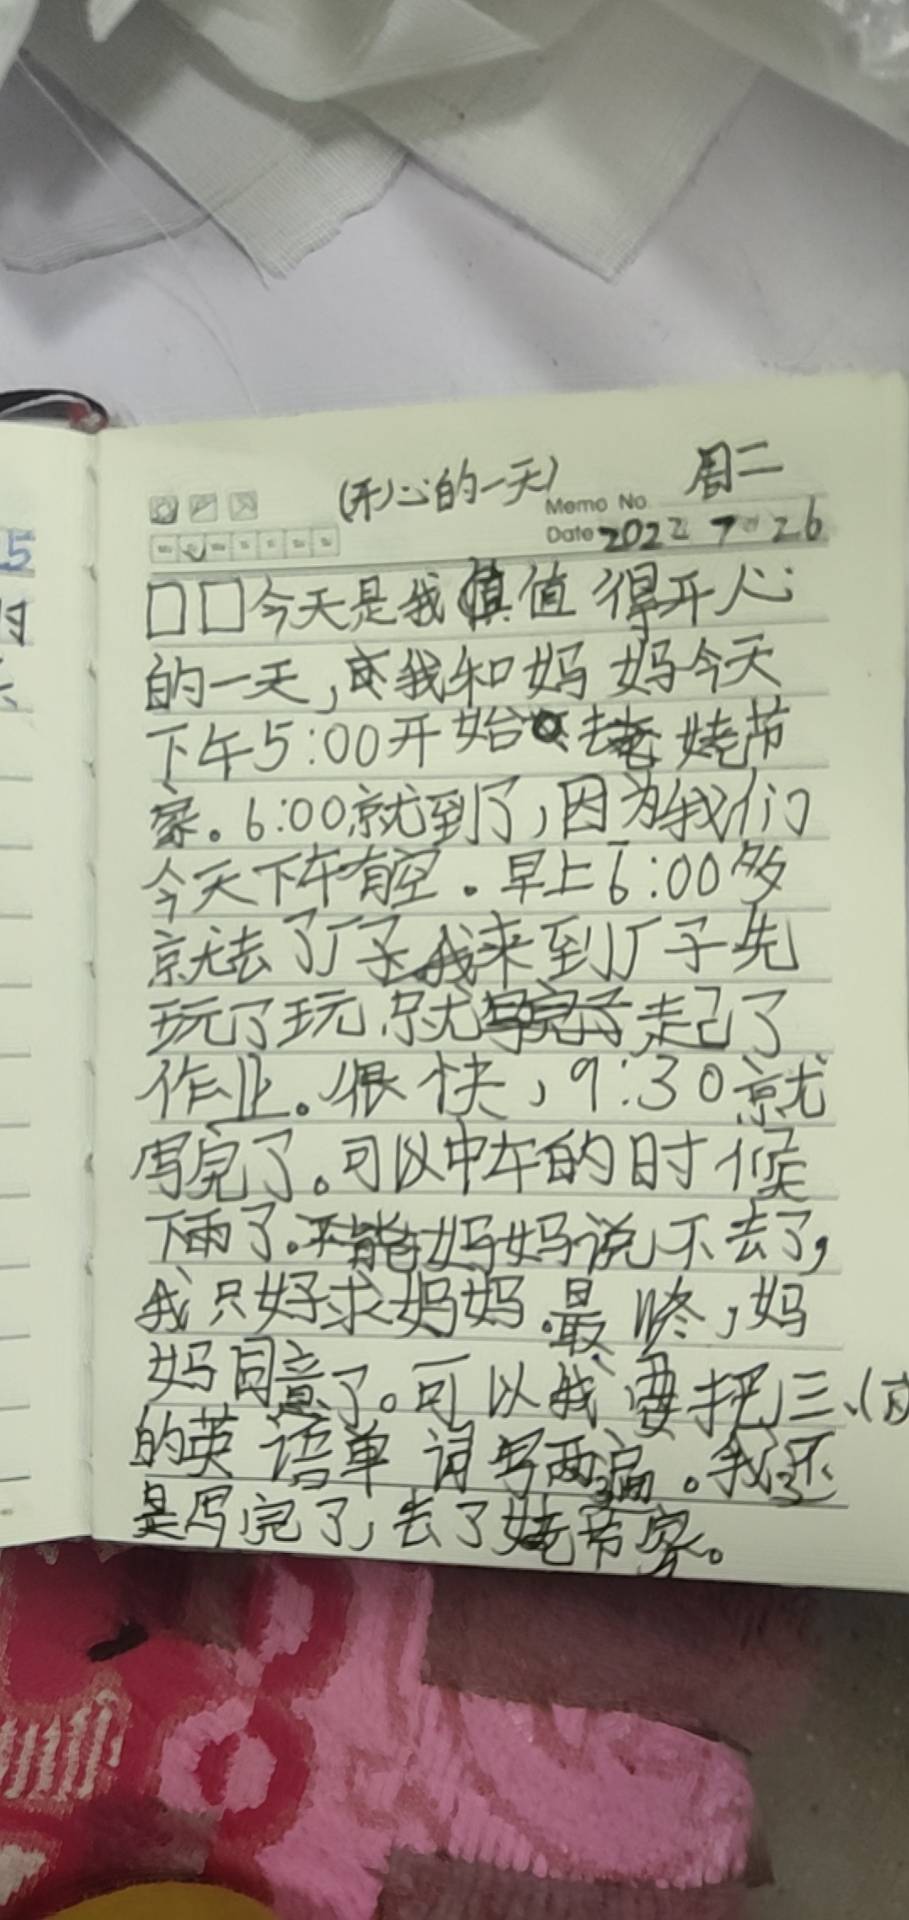 周二
(开心的一天)
Memo No.
Date 2022 7 26
5
□□今天是我值得开心
的一天,我和妈妈今天
下午5:00开始去姥爷
家。6:00就到了,因为我们
今天下午有空。早上6:00多
就去了厂子.我来到厂子先
玩了玩,就走己了
作业。很快,9:30就
写完了。可以中午的时候
下雨了.妈妈说不去了,
我只好求妈妈.最终,妈
妈同意了。可以我要把三、
的英语单词写两遍。我还
是写完了,去了姥爷家。